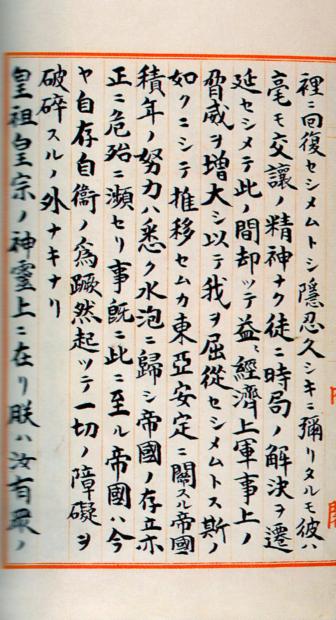 裡ニ回復セシメムトシ隱忍久シキニ彌リタルモ彼ハ
毫モ交讓ノ精神ナク徒ニ時局ノ解決ヲ遷
延セシメテ此ノ間却ツテ益〻經濟上軍事上ノ
脅威ヲ增大シ以テ我ヲ屈從セシメムトス斯ノ
如クニシテ推移セムカ東亞安定ニ關スル帝國
積年ノ努力ハ悉ク水泡ニ歸シ帝國ノ存立亦
正ニ危殆ニ瀕セリ事既ニ此ニ至ル帝國ハ今
ヤ自存自衞ノ爲蹶然起ツテ一切ノ障礙ヲ
破碎スルノ外ナキナリ
皇祖皇宗ノ神靈上ニ在リ朕ハ汝有眾ノ
閣